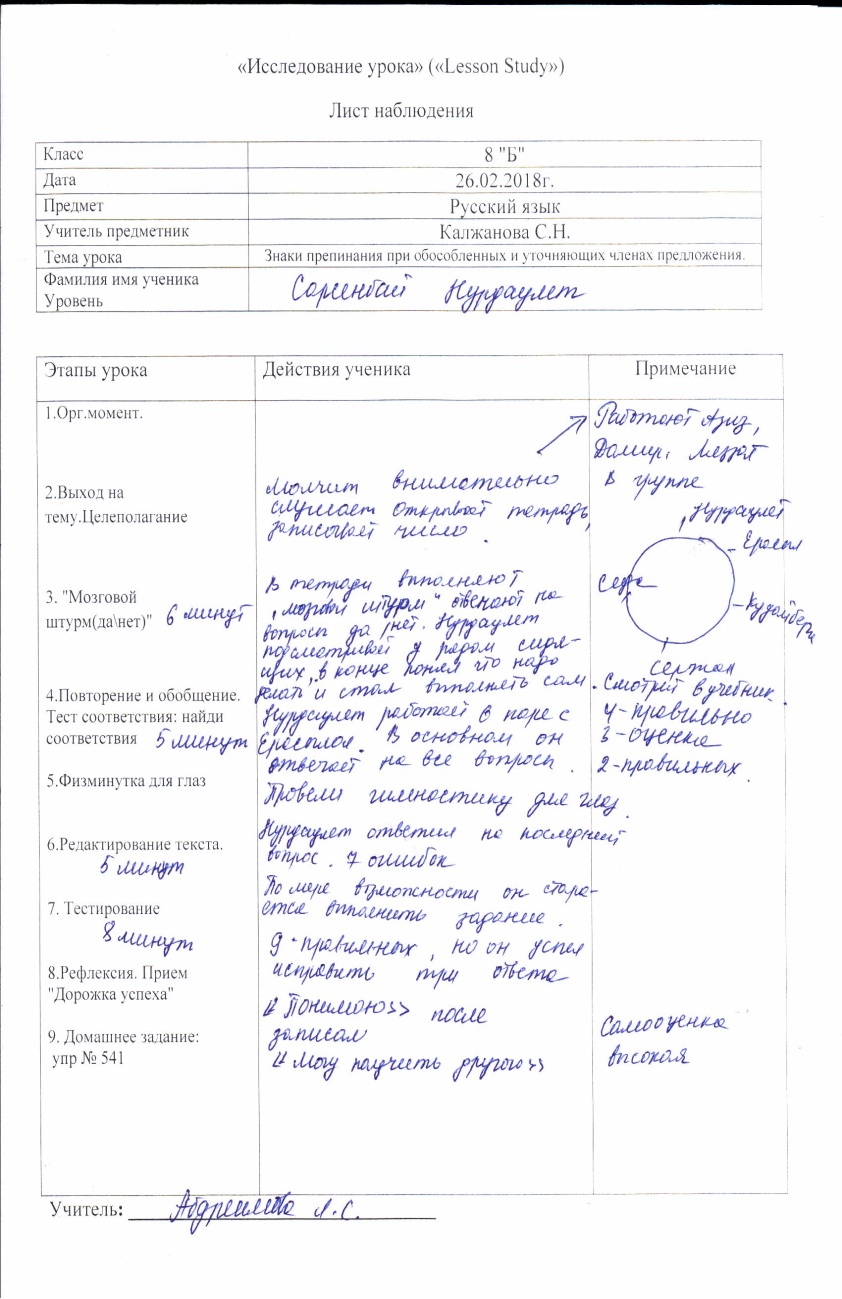 «Исследование урока» («Lesson Study»)
Лист наблюдения
Класс 8 "Б"
Дата 26.02.2018г.
Предмет Русский язык
Учитель предметник Калжанова С.Н.
Тема урока Знаки препинания при обособленных и уточняющих членах предложения.
Фамилия имя ученика
Уровень
Сарсенбай Нурдаулет
Этапы урока Действия ученика Примечание
1.Орг.момент.
Работают Азиз,
Дамир, Ляззат
в группе
2.Выход на
тему.Целеполагание
Молчит внимательно
слушает открывает тетрадь,
записывает число.
Нурдаулет
Ерасыл
Кудайберг
Сержан
3. "Мозговой
штурм(да\нет)" 6 минут
В тетради выполняют
„мозговой штурм" отвечают на
вопросы да/нет. Нурдаулет
подсматривает у рядом сидя-
щих, в конце понял что надо
делать и стал выполнять сам.
4.Повторение и обобщение.
Тест соответствия: найди
соответствия 5 минут
Нурдаулет работает в паре с
Ерасылом. В основном он
отвечает на все вопросы.
Смотрит в учебник.
4-правильно
3-оценка
2-правильных.
5.Физминутка для глаз
Провели гимностику для глаз.
6.Редактирование текста.
5 минут
Нурдаулет ответил на последний
вопрос. 7 ошибок
7. Тестирование
8 минут
По мере возможности он стара-
ется выполнить задание.
9-правильных, но он успел
исправить три ответа
8.Рефлексия. Прием
"Дорожка успеха"
«Понимаю» после
записал
«Могу научить другого»
Самооценка
высокая
9. Домашнее задание:
упр № 541
Учитель: Л.С.